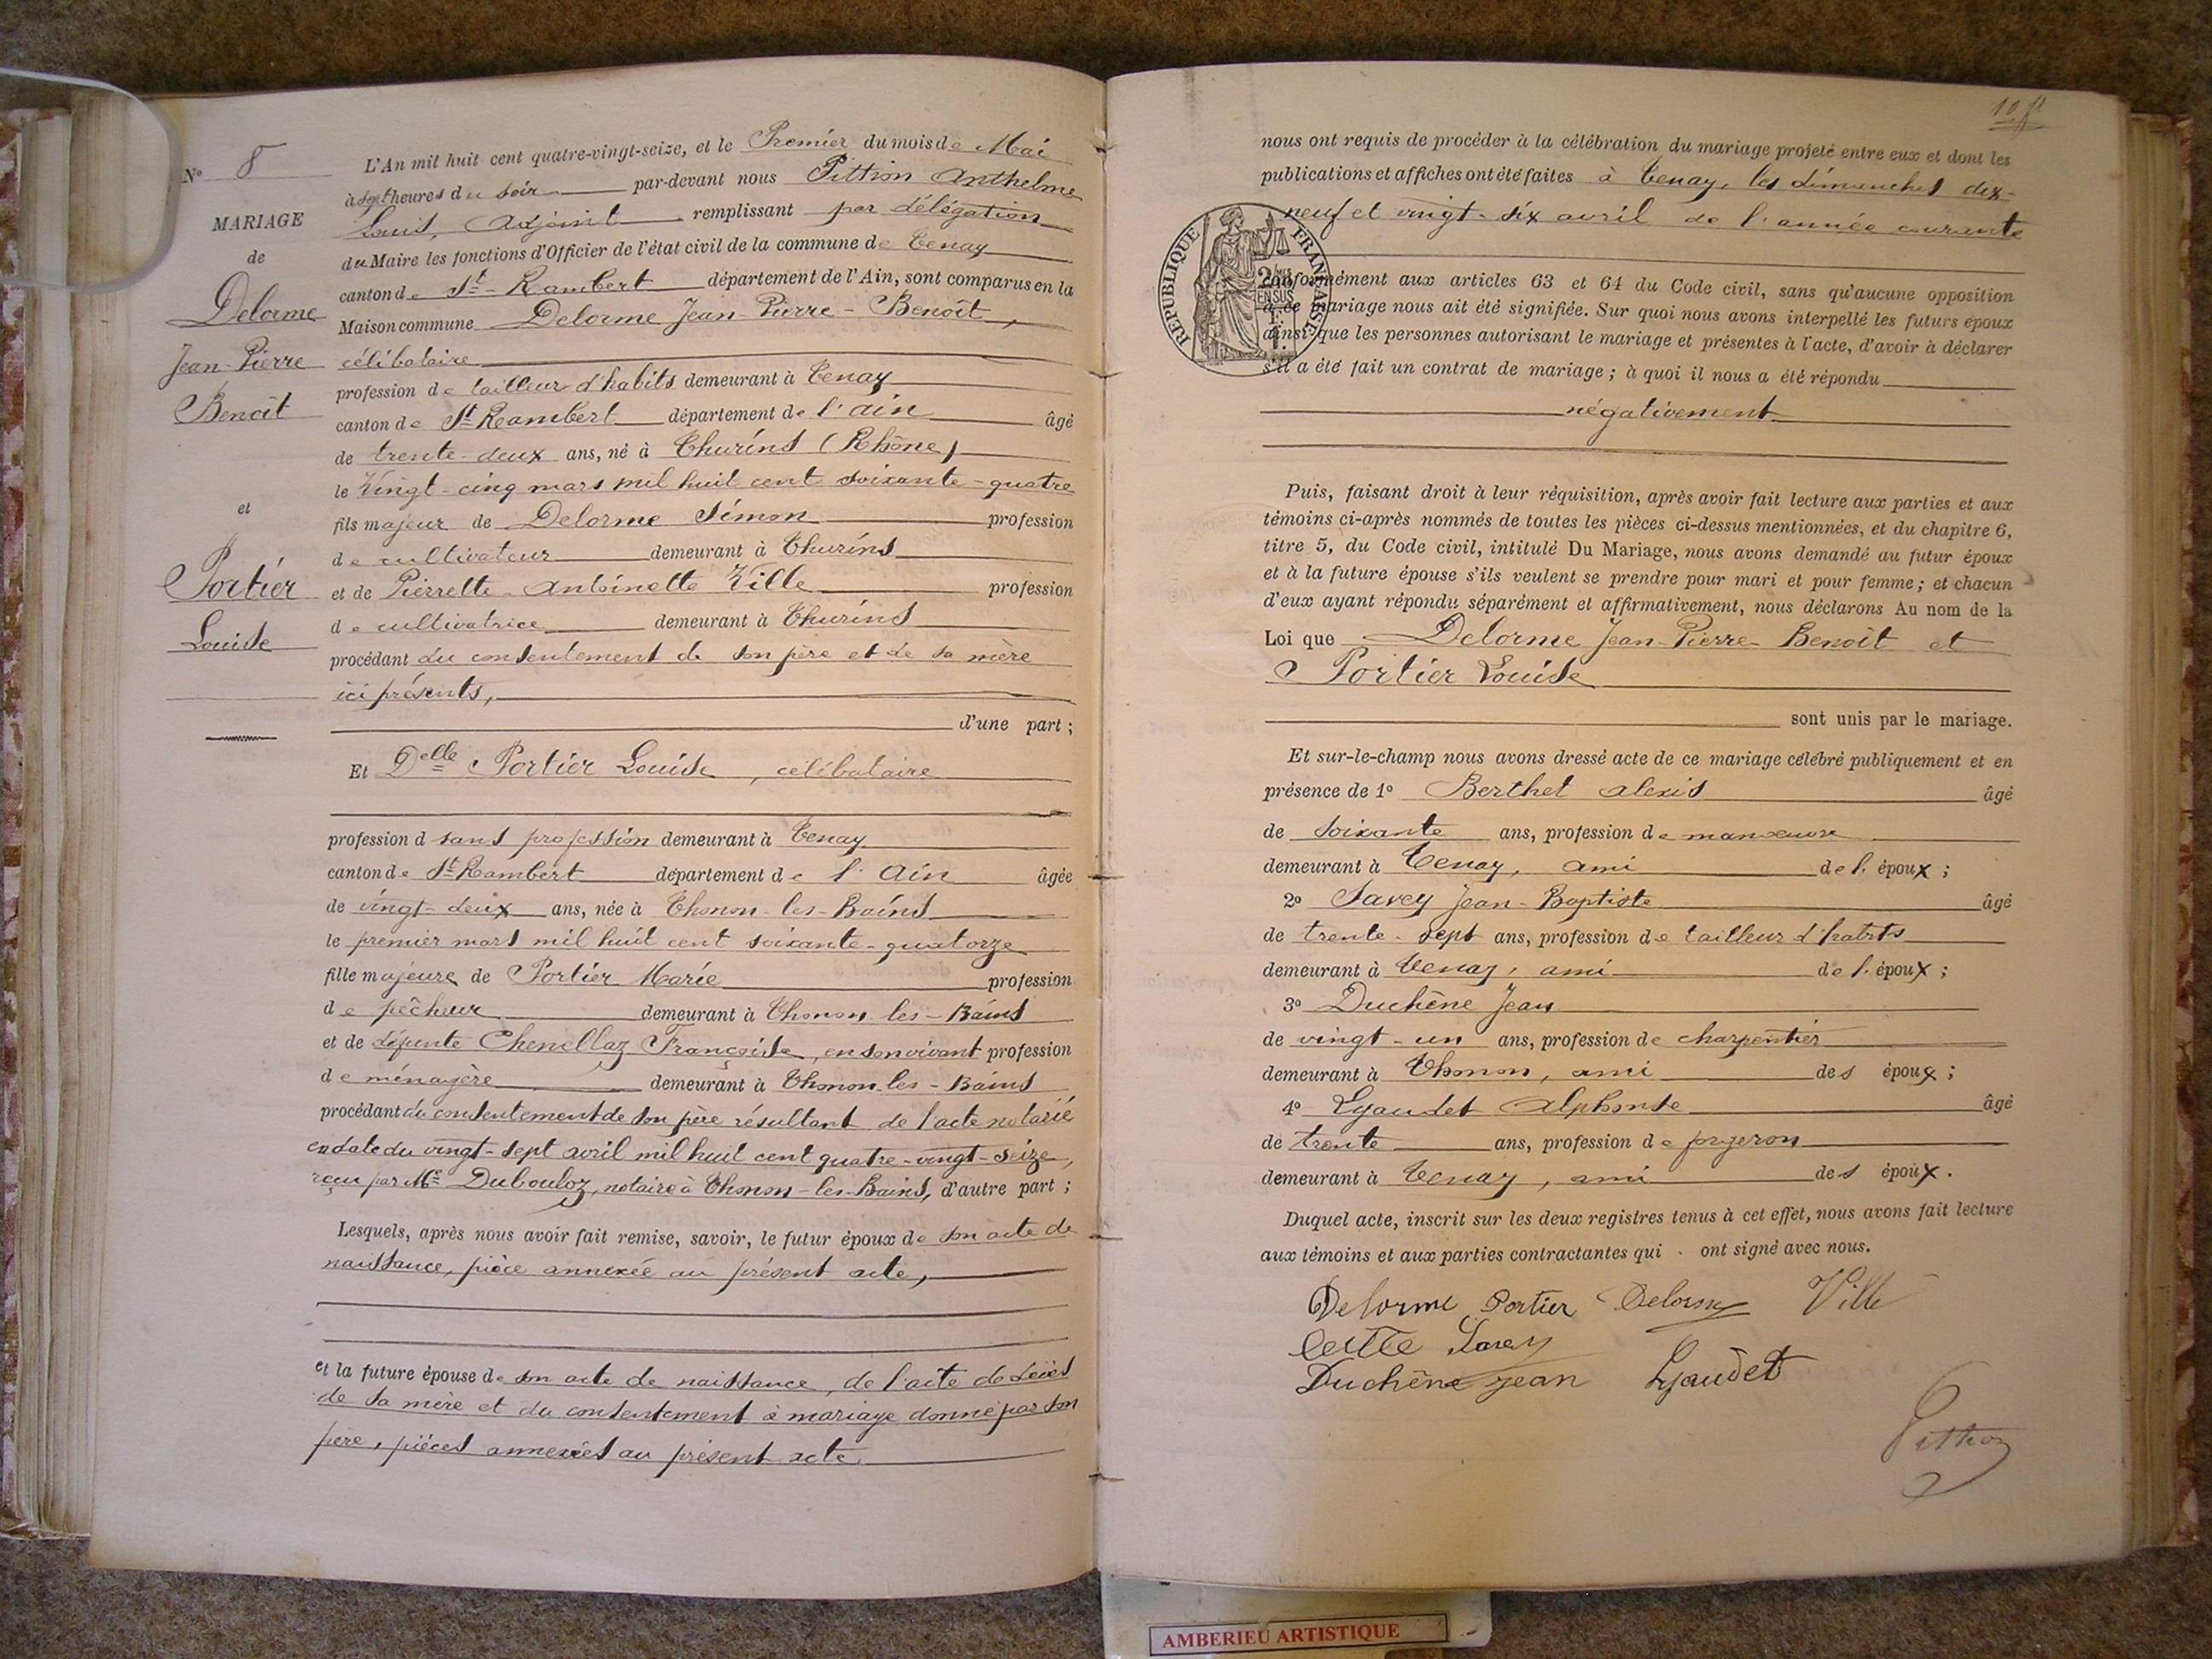 Nº 8
MARIAGE
de
Delorme
Jean-Pierre
Benoît
et
Portier
Louise
L'An mil huit cent quatre-vingt-seize, et le Premier du mois de Mai
à sept heures du soir par-devant nous Pittion Anthelme
Louis, Adjoint remplissant par délégation
du Maire les fonctions d'Officier de l'état civil de la commune de Tenay
canton de St-Rambert département de l'Ain, sont comparus en la
Maison commune Delorme Jean-Pierre-Benoît,
célibataire
profession de tailleur d'habits demeurant à Tenay
canton de St Rambert département de l'Ain âgé
de trente-deux ans, né à Thurins (Rhône)
le Vingt-cinq mars mil huit cent soixante-quatre
fils majeur de Delorme Simon profession
de cultivateur demeurant à Thurins
et de Pierrette Antoinette Ville profession
de cultivatrice demeurant à Thurins
procédant du consentement de son père et de sa mère
ici présents,
d'une part ;
Et Delle Portier Louise, célibataire
profession d sans profession demeurant à Tenay
canton de St Rambert département de l'Ain âgée
de vingt-deux ans, née à Thonon-les-Bains
le premier mars mil huit cent soixante-quatorze
fille majeure de Portier Marie profession
de pêcheur demeurant à Thonon-les-Bains
et de défunte Chenellaz Françoise, en son vivant profession
de ménagère demeurant à Thonon-les-Bains
procédant du consentement de son père résultant de l'acte notarié
en date du vingt-sept avril mil huit cent quatre-vingt-seize,
reçu par Me Dubouloz, notaire à Thonon-les-Bains, d'autre part ;
Lesquels, après nous avoir fait remise, savoir, le futur époux de son acte de
naissance, pièce annexée au présent acte,
et la future épouse de son acte de naissance, de l'acte de décès
de sa mère et du consentement à mariage donné par son
père, pièces annexées au présent acte
nous ont requis de procéder à la célébration du mariage projeté entre eux et dont les
publications et affiches ont été faites à Tenay, les dimanches dix-
neuf et vingt-six avril de l'année courante
RÉPUBLIQUE FRANÇAISE
conformément aux articles 63 et 64 du Code civil, sans qu'aucune opposition
à ce mariage nous ait été signifiée. Sur quoi nous avons interpellé les futurs époux
ainsi que les personnes autorisant le mariage et présentes à l'acte, d'avoir à déclarer
s'il a été fait un contrat de mariage ; à quoi il nous a été répondu
négativement
Puis, faisant droit à leur réquisition, après avoir fait lecture aux parties et aux
témoins ci-après nommés de toutes les pièces ci-dessus mentionnées, et du chapitre 6,
titre 5, du Code civil, intitulé Du Mariage, nous avons demandé au futur époux
et à la future épouse s'ils veulent se prendre pour mari et pour femme ; et chacun
d'eux ayant répondu séparément et affirmativement, nous déclarons Au nom de la
Loi que Delorme Jean-Pierre-Benoît et
Portier Louise
sont unis par le mariage.
Et sur-le-champ nous avons dressé acte de ce mariage célébré publiquement et en
présence de 1º Berthet Alexis âgé
de soixante ans, profession de manœuvre
demeurant à Tenay, ami de l'époux ;
2º Savey Jean-Baptiste âgé
de trente-sept ans, profession de tailleur d'habits
demeurant à Tenay, ami de l'époux ;
3º Duchêne Jean
de vingt-un ans, profession de charpentier
demeurant à Thonon, ami des époux ;
4º Lyaudet Alphonse âgé
de trente ans, profession de forgeron
demeurant à Tenay, ami des époux.
Duquel acte, inscrit sur les deux registres tenus à cet effet, nous avons fait lecture
aux témoins et aux parties contractantes qui ont signé avec nous.
Delorme Portier Delorme Ville
Savey
Duchêne Jean Lyaudet
Pittion
AMBERIEU ARTISTIQUE